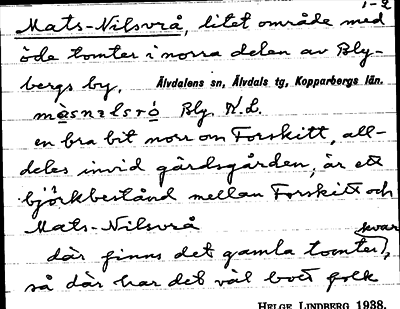 1-2
Mats-Nilsvrå, litet område med
öde tomter i norra delen av Bly-
bergs by. Älvdalens sn, Älvdals tg, Kopparbergs län.
Bly. N.L.
en bra bit norr om Forskitt, all-
deles invid gärdsgården, är ett
björkbestånd mellan Forskitt och
Mats-Nilsvrå
där finns det gamla tomter kvar,
så där har det väl bott folk
HELGE LINDBERG 1938.